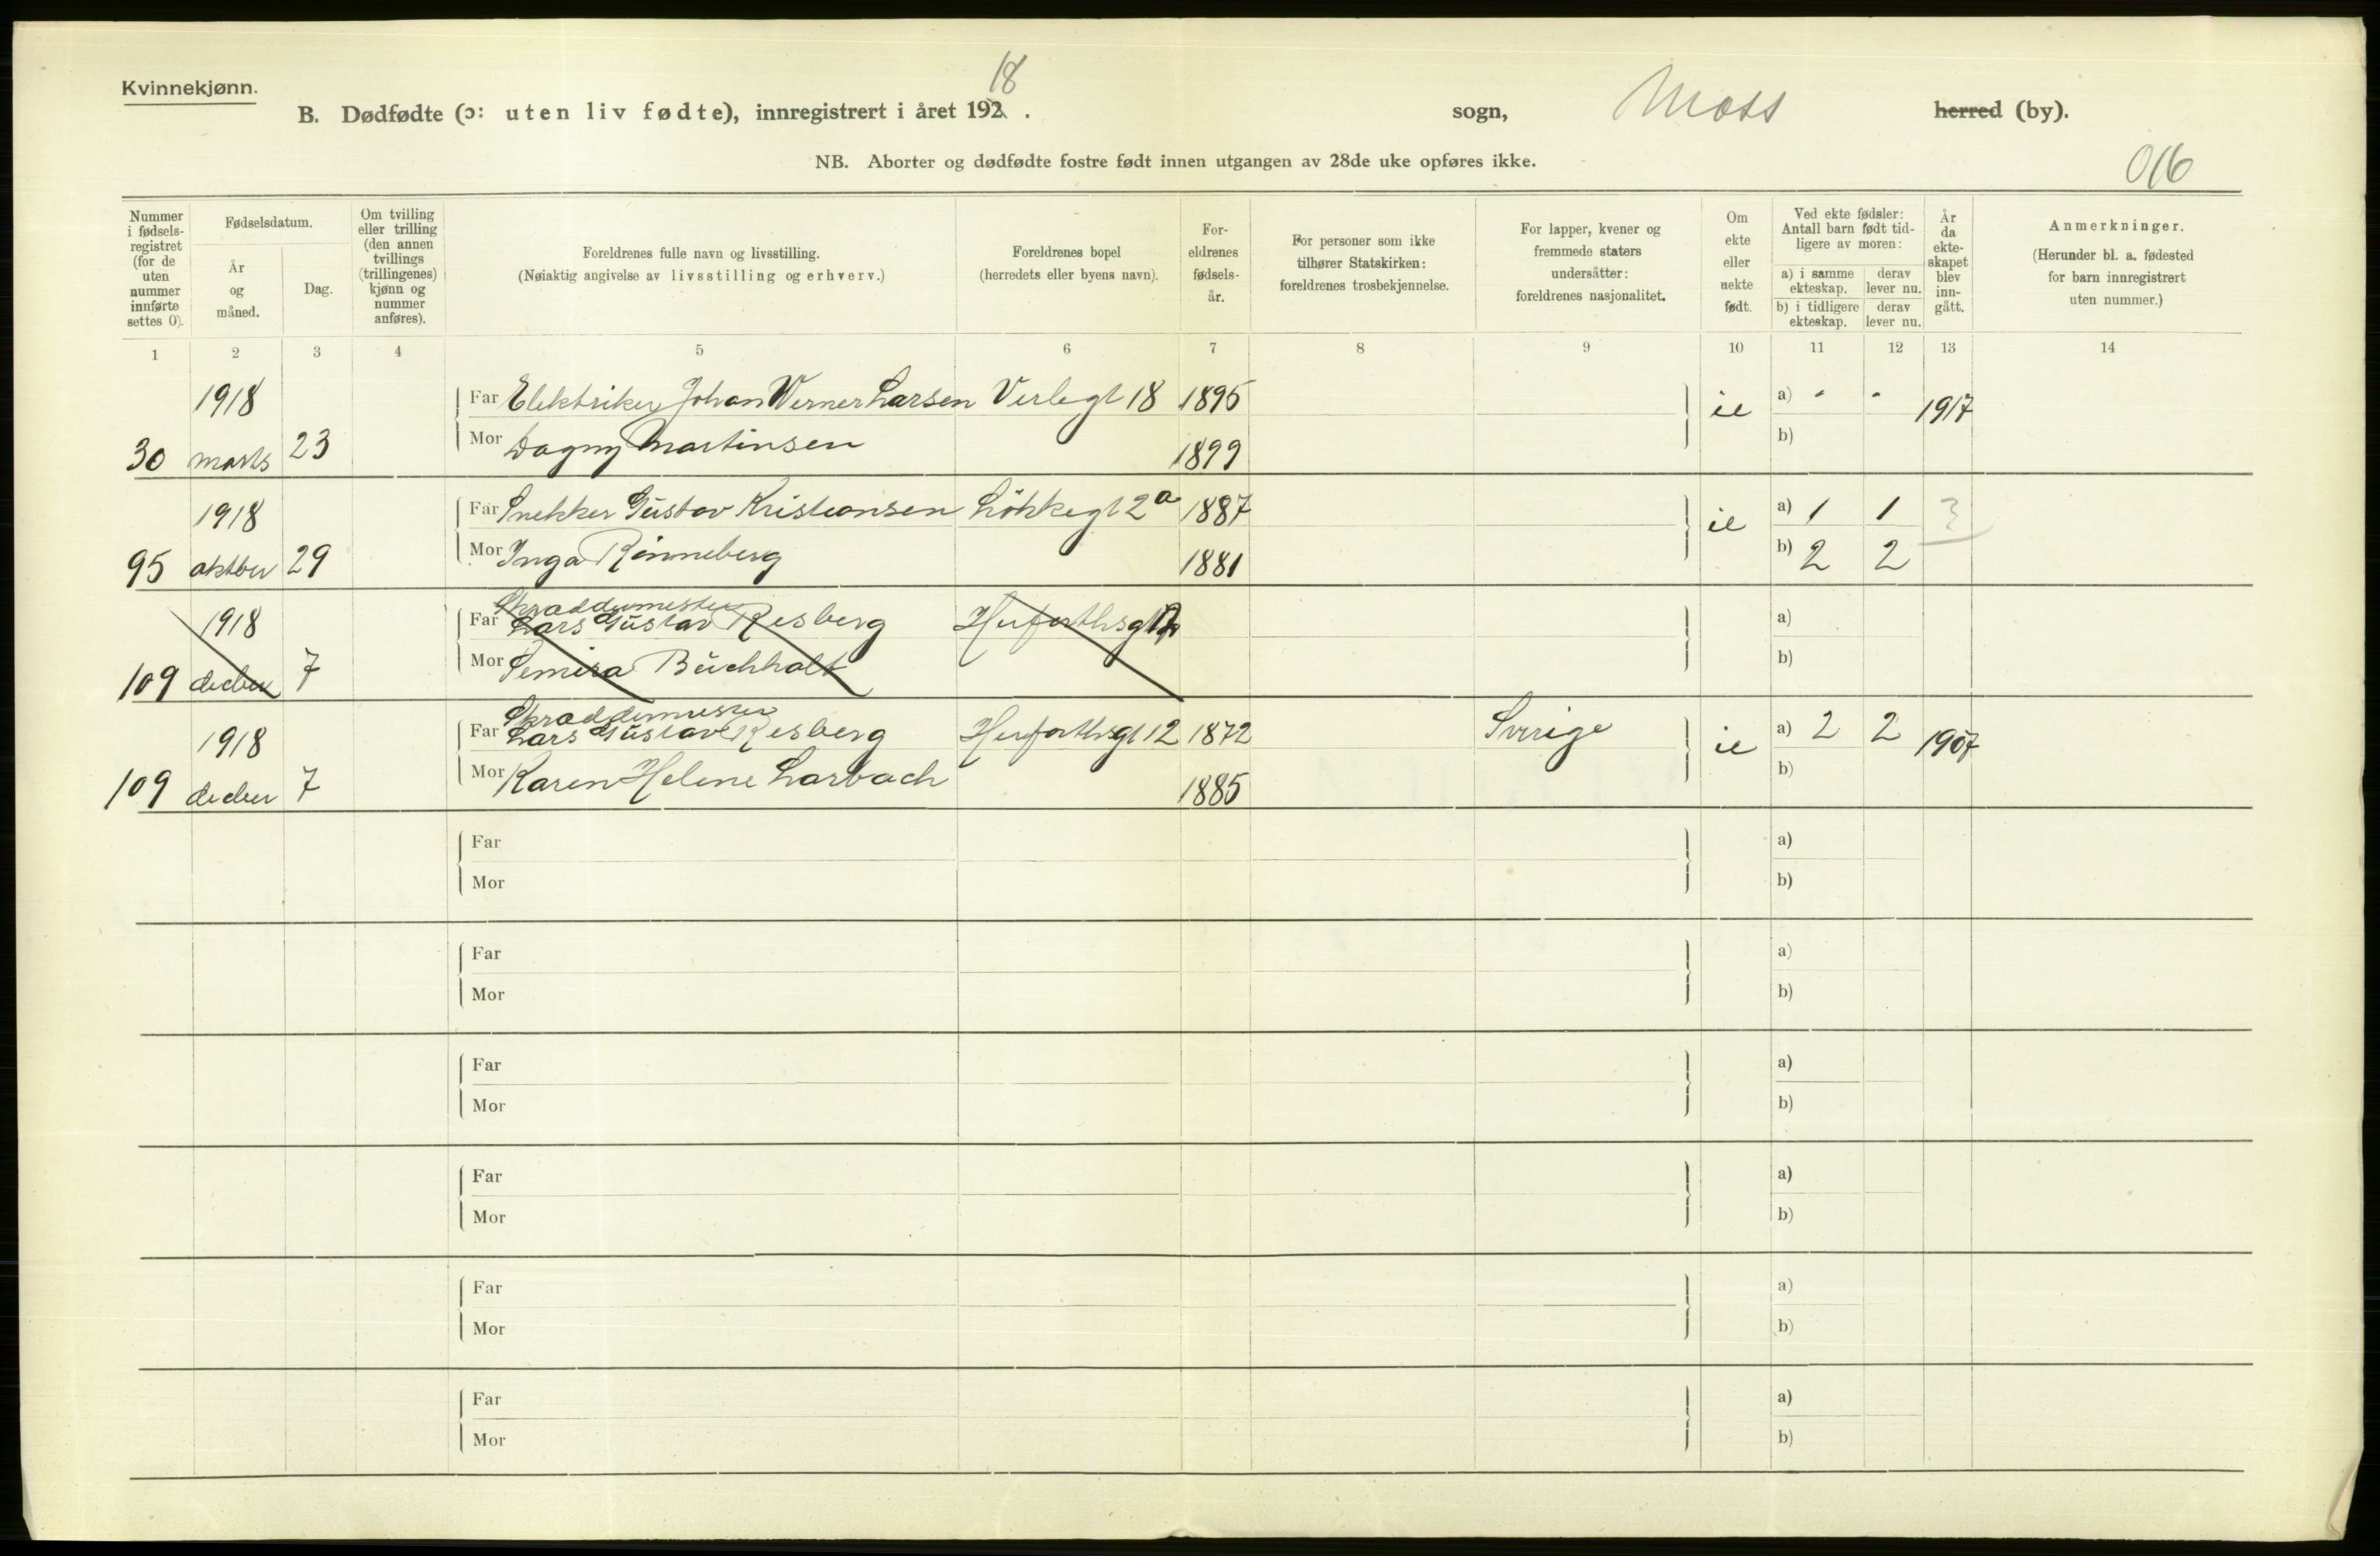 Kvinnekjønn.
B. Dødfødte (ɔ: uten liv fødte), innregistrert i året 192 18 . sogn, Moss herred (by).
NB. Aborter og dødfødte fostre født innen utgangen av 28de uke opføres ikke.
016
Nummer i fødsels-registret (for de uten nummer innførte settes 0).
Fødselsdatum.
År og måned.
Dag.
Om tvilling eller trilling (den annen tvillings (trillingenes) kjønn og nummer anføres).
Foreldrenes fulle navn og livsstilling.
(Nøiaktig angivelse av livsstilling og erhverv.)
Foreldrenes bopel
(herredets eller byens navn).
For-eldrenes fødsels-år.
For personer som ikke tilhører Statskirken: foreldrenes trosbekjennelse.
For lapper, kvener og fremmede staters undersåtter: foreldrenes nasjonalitet.
Om ekte eller nekte født.
Ved ekte fødsler: Antall barn født tid-ligere av moren:
a) i samme ekteskap.
derav lever nu.
b) i tidligere ekteskap.
derav lever nu.
År da ekte-skapet blev inn-gått.
Anmerkninger.
(Herunder bl. a. fødested for barn innregistrert uten nummer.)
1 2 3 4 5 6 7 8 9 10 11 12 13 14
1918 Far Elektriker Johan Werner Larsen Verlegt 18 1895 ie a) - - 1917
30 marts 23 Mor Dagny Martinsen 1899 b)
1918 Far Snekker Gustav Kristiansen Løkkegt 2a 1887 ie a) 1 1 3
95 oktber 29 Mor Inga Rønneberg 1881 b) 2 2
Skræddermester
1918 Far Lars Gustav Resberg Herforthsgt 12 a)
109 decber 7 Mor Semira Buchholt b)
Skræddermester
1918 Far Lars Gustav Resberg Herforthsgt 12 1872 Sverige ie a) 2 2 1907
109 decber 7 Mor Karen Helene Larbach 1885 b)
Far a)
Mor b)
Far a)
Mor b)
Far a)
Mor b)
Far a)
Mor b)
Far a)
Mor b)
Far a)
Mor b)